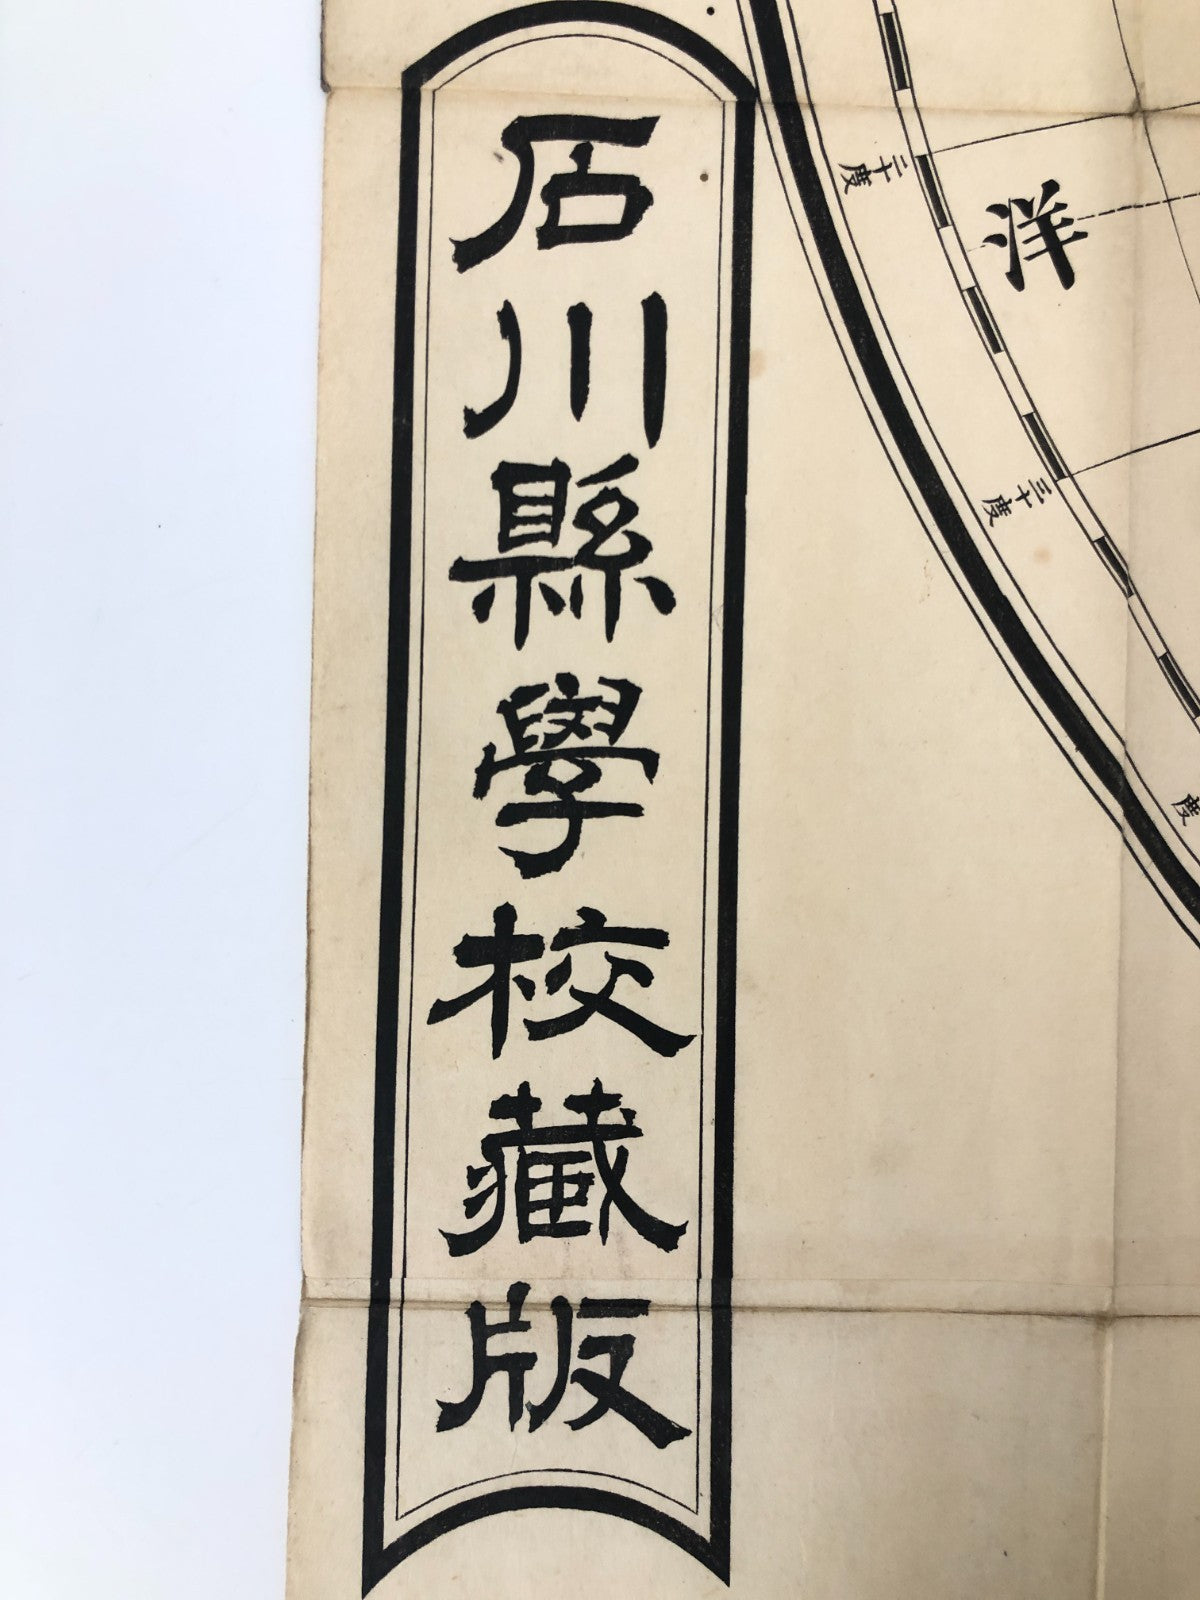 石川縣學校藏版
洋
二十度
三十度
度